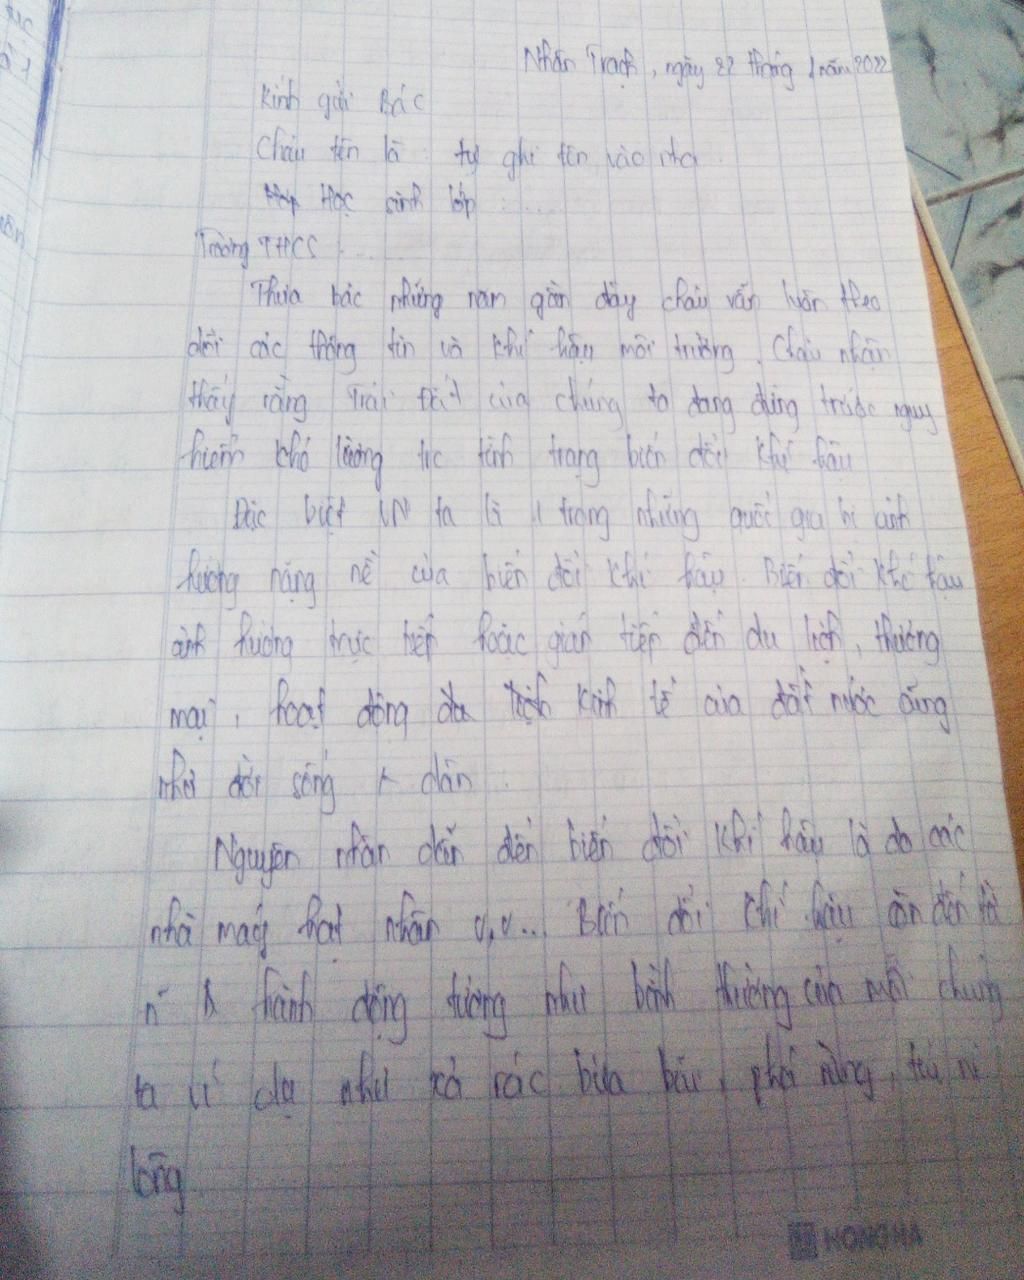 Nhân Trạch, ngày 22 tháng 1 năm 2022
Kính gửi Bác
Cháu tên là : tự ghi tên vào nha
Học sinh lớp : ....
Trường THCS ...
Thưa bác những năm gần đây cháu vẫn luôn theo
dõi các thông tin về khí hậu môi trường. Cháu nhận
thấy rằng Trái Đất của chúng ta đang đứng trước nguy
hiểm khó lường tình trạng biến đổi khí hậu
Đặc biệt VN ta là 1 trong những quốc gia bị ảnh
hưởng nặng nề của biến đổi khí hậu. Biến đổi khí hậu
ảnh hưởng trực tiếp hoặc gián tiếp đến du lịch, thương
mại, hoạt động kinh tế của đất nước cũng
như đời sống dân.
Nguyên nhân dẫn đến biến đổi khí hậu là do các
nhà máy hạt nhân v,v... Biến đổi khí hậu còn đến từ
hành động tưởng như bình thường của mỗi chúng
ta ví dụ như xả rác bừa bãi, phá rừng, túi ni
lông
HONG HA